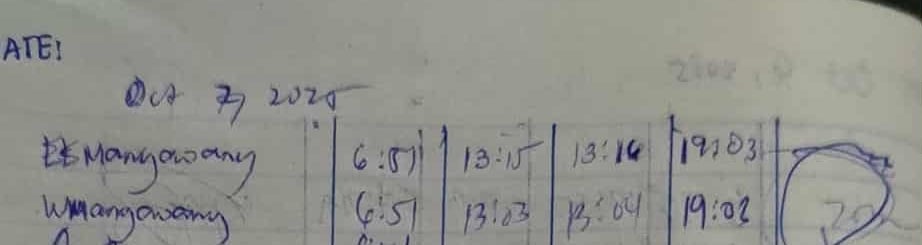 ATE:
Oct 7, 2025
ES Mangawang 6:51 13:15 13:16 19:03
WMangawang 6:51 13:03 13:04 19:02